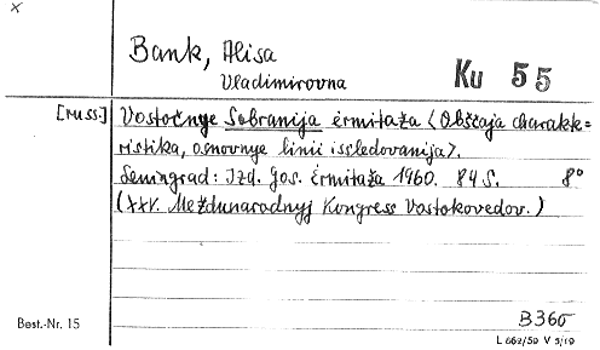 x
Bank, Alisa
Vladimirovna
Ku 55
[russ.] Vostočnye Sobranija ėrmitaža <Obščaja charakte=
ristika, osnovnye linii issledovanija>.
Leningrad: Izd. Gos. ėrmitaža 1960. 84 S. 8°
(XXV. Meždunarodnyj Kongress Vostokovedov.)
B360
Best.-Nr. 15
L 662/59 V 5/19